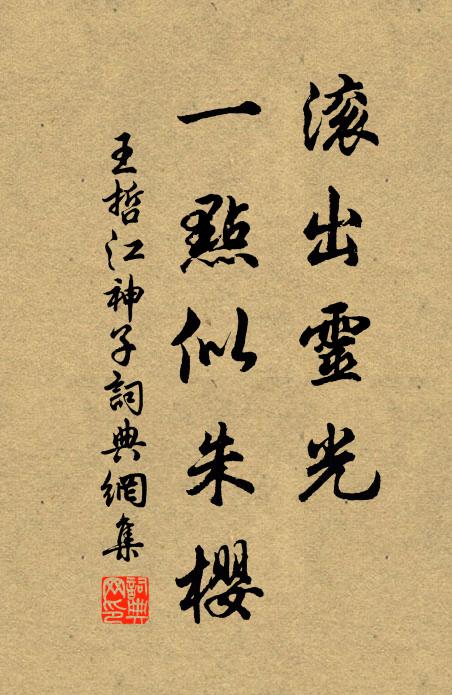 滚出靈光
一點似朱櫻
王哲江神子詞典網集
詞典
网印